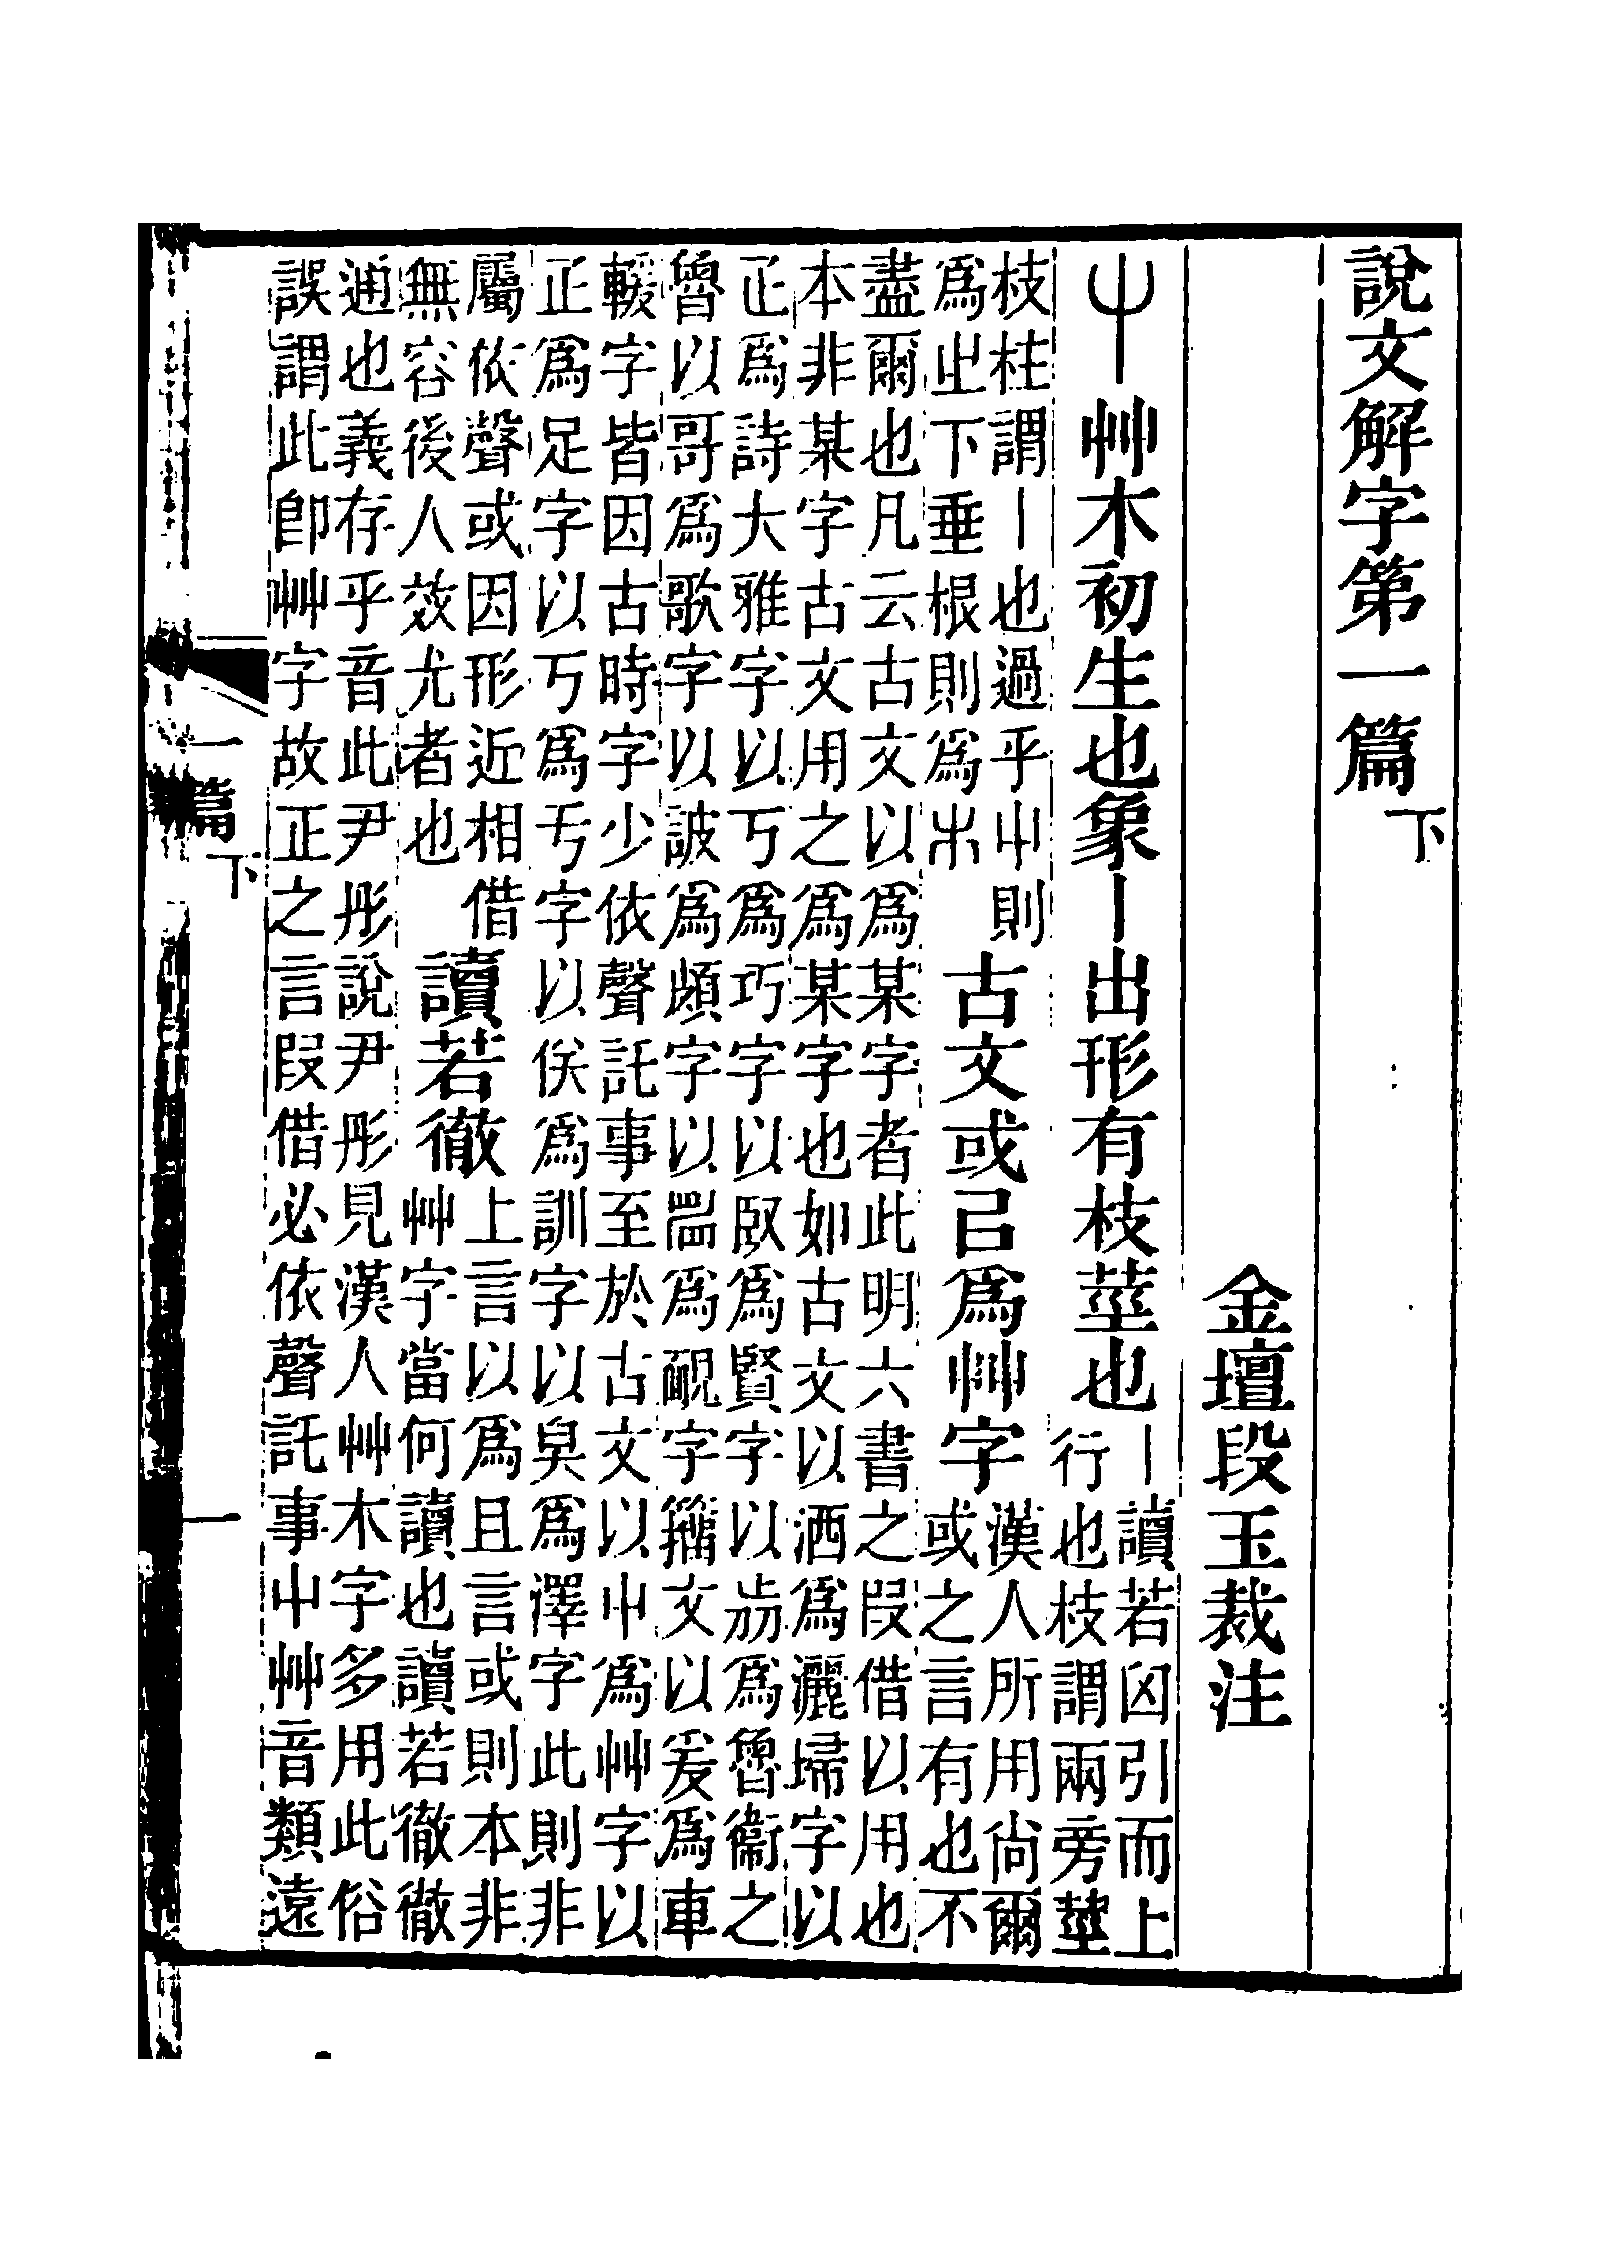 說文解字第一篇下
金壇段玉裁注
屮艸木初生也象丨出形有枝莖也
丨讀若囟引而上
行也枝謂兩旁莖
枝柱謂丨也過乎屮則
爲㞢下垂根則爲𣎵
古文或㠯爲艸字
漢人所用尙爾
或之言有也不
盡爾也凡云古文以爲某字者此明六書之叚借以用也
本非某字古文用之爲某字也如古文以洒爲灑埽字以
疋爲詩大雅字以丂爲巧字以臤爲賢字以𣥐爲魯衞之
魯以哥爲歌字以詖爲頗字以爲靦字籒文以爰爲車
轅字皆因古時字少依聲託事至於古文以屮爲艸字以
疋爲足字以丂爲亏字以㑞爲訓字以臭爲澤字此則非
屬依聲或因形近相借
無容後人效尤者也
讀若徹
上言以爲且言或則本非
艸字當何讀也讀若徹徹
通也義存乎音此尹彤說尹彤見漢人艸木字多用此俗
誤謂此卽艸字故正之言叚借必依聲託事屮艸音類遠
一篇下
一